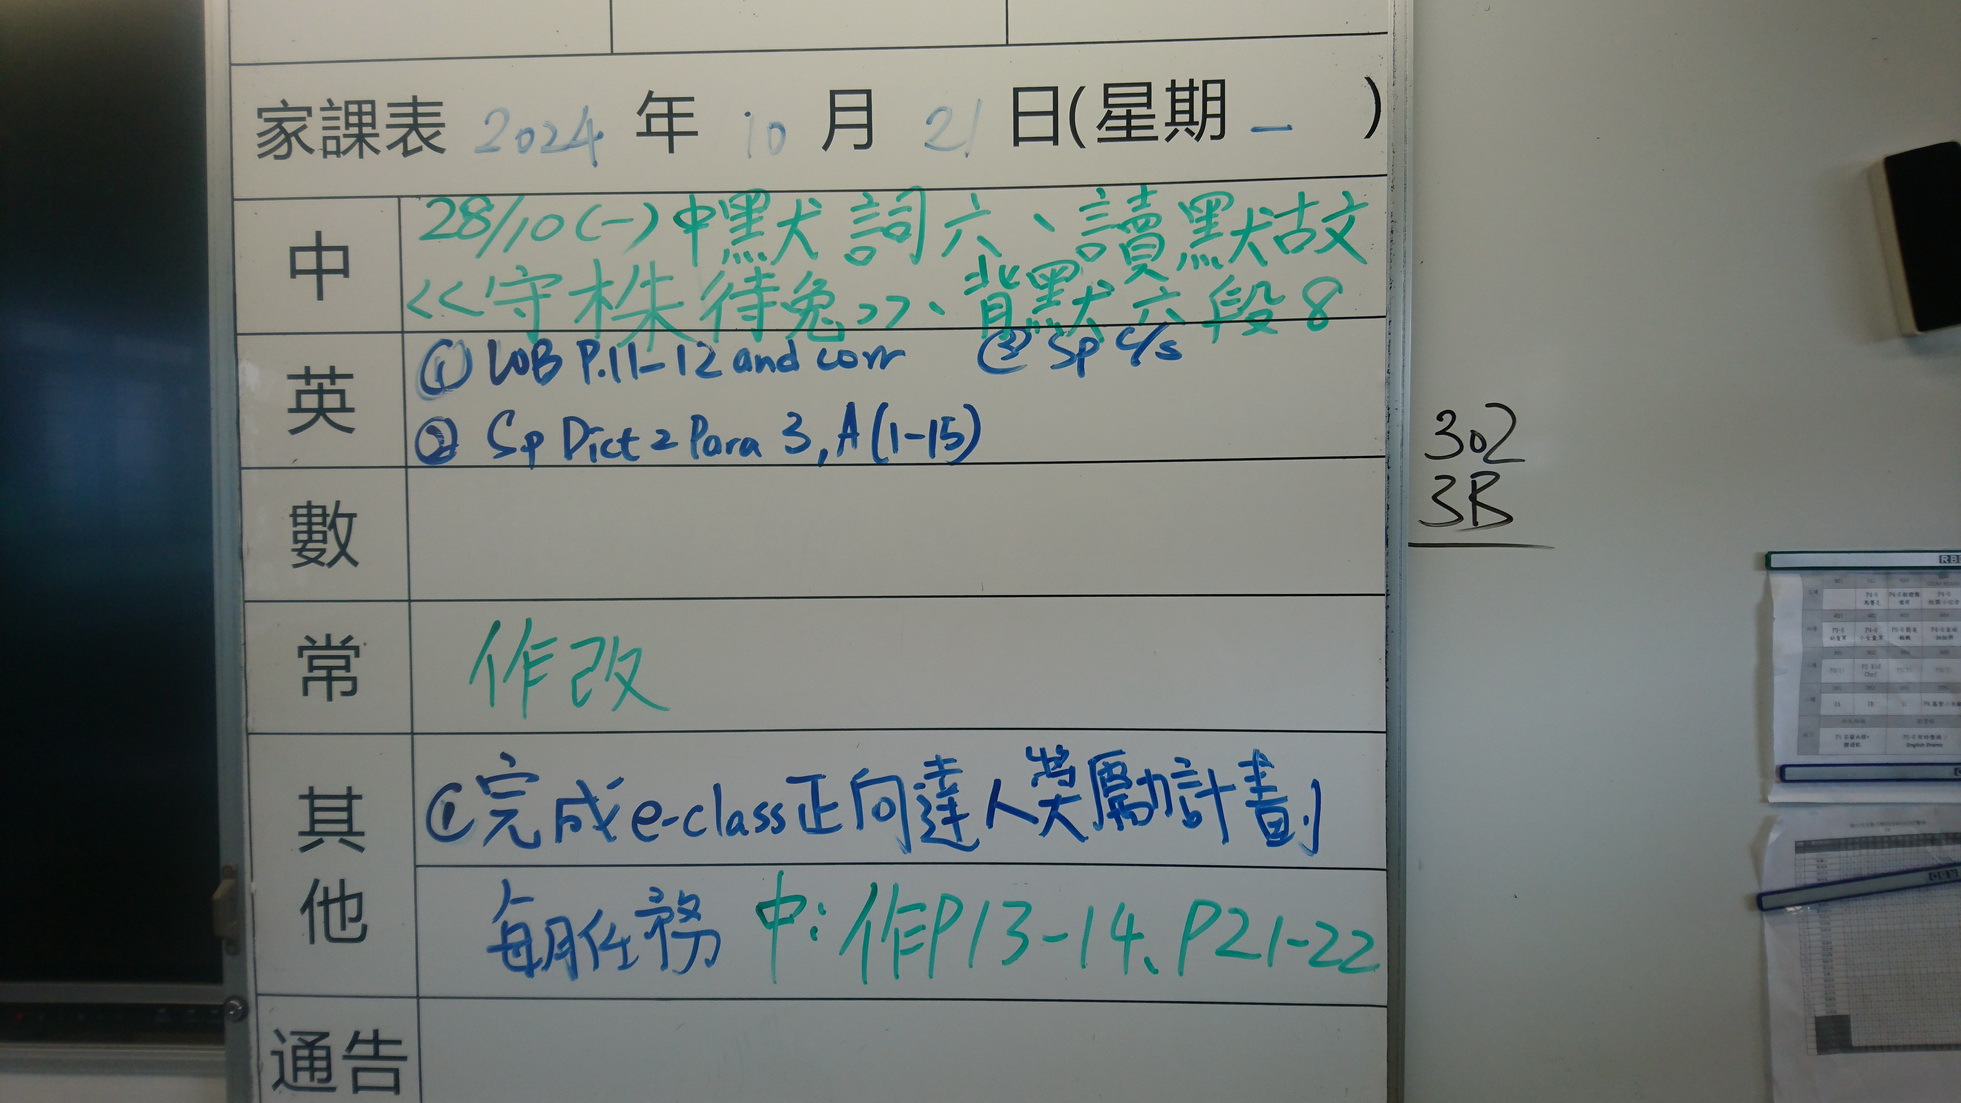 家課表 2024 年 10 月 21 日(星期 一 )
中
28/10(一)中默 詞六、讀默古文
<<守株待兔>>、背默六段8
英
① WB P.11-12 and corr ③ Sp C/s
② Sp Dict 2 Para 3, A(1-15)
數
常
作改
其他
①完成e-class正向達人獎勵計劃
每月任務 中:作P13-14、P21-22
通告
302
3B